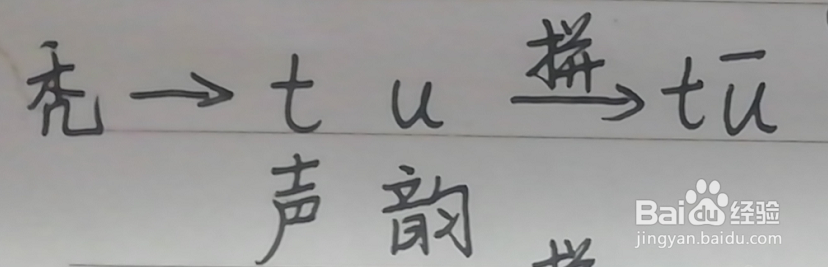 秃 → t u 拼→ tū
声 韵
拼
Baidu经验
jingyan.baidu.com